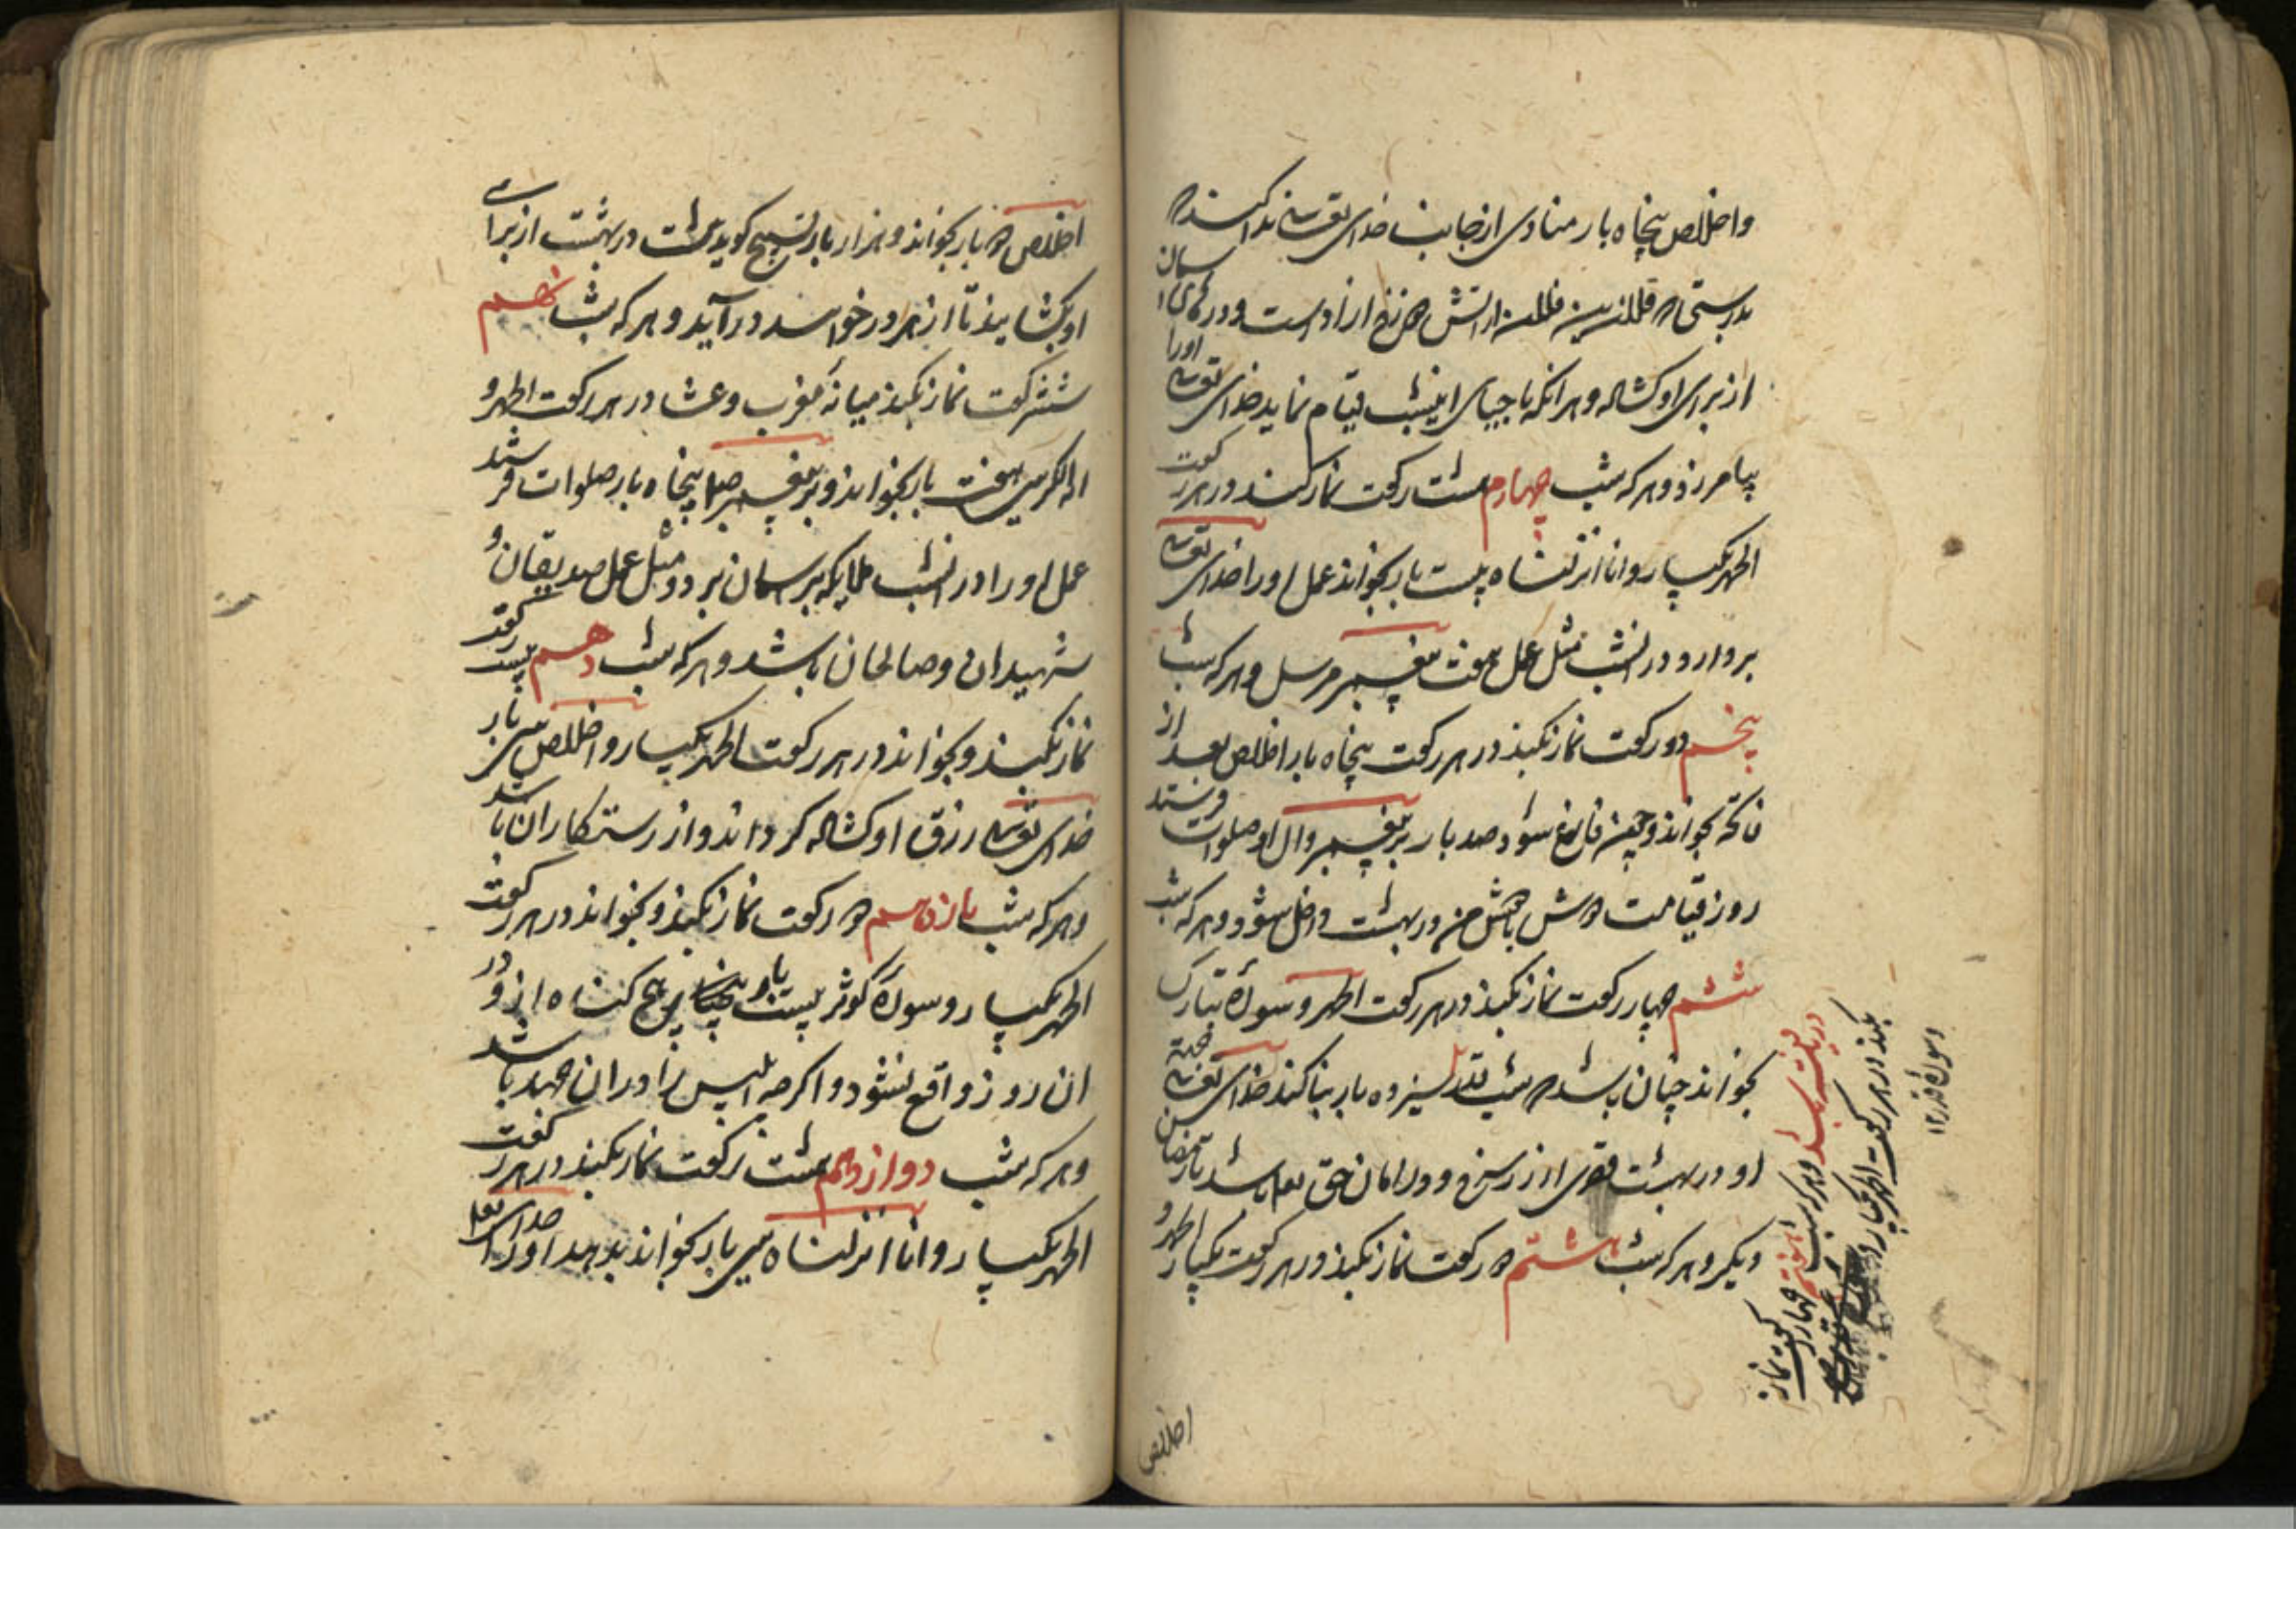 واخلاص پنجاه بار منادی از جانب خدای تعالی ندا کند که
بدرستی که فلان بن فلان از آتش دوزخ آزاد است و درهای آسمان
از برای او کشاده و هر آنکه باحیای اینشب قیام نماید خدای تعالی اورا
بیامرزد و هر که شب چهارم هشت رکعت نماز کند در هر رکعت
الحمد یکبار و انا انزلناه بیست بار بخواند عمل او را خدای تعالی
بردارد در آنشب مثل عمل هفت پیغمبر مرسل و هر که شب
پنجم دو رکعت نماز بکند در هر رکعت پنجاه بار اخلاص بعد از
فاتحه بخواند و چون فارغ شود صد بار بر پیغمبر و آل او صلوات فرستد
روز قیامت دوش با دوش من در بهشت داخل شود و هر که شب
ششم چهار رکعت نماز بکند در هر رکعت الحمد و سوره تبارک
بخواند چنان باشد که شب قدر سیزده بار بنا کند خدای تعالی جهة
او در بهشت قصری از زر سرخ و در امان حق تعالی باشد تا رمضان
دیگر و هر که شب هشتم ده رکعت نماز بکند در هر رکعت یکبار الحمد و
دریافته باشد و هر که شب هفتم چهار رکعت نماز
بکند در هر رکعت الحمد یکبار و
وسوره قدر ۱۳
اخلاص
اخلاص ده بار بخواند و هزار بار تسبیح کوید هشت در بهشت از برای
او بکشایند تا از هر در خواسد در آید و هر که شب نهم
شش رکعت نماز بکند میانه مغرب و عشا در هر رکعت الحمد و
آیة الکرسی هفت بار بخواند و بر پیغمبر پنجاه بار صلوات فرستد
عمل او را در آنشب ملایکه بر آسمان برد و مثل عمل صدیقان و
شهیدان و صالحان باشد و هر که شب دهم بیست رکعت
نماز بکند و بخواند در هر رکعت الحمد یکبار و اخلاص سی بار
خدای تعالی رزق او کشاده کرداند و از رستکاران باشد
و هر که شب یازدهم دو رکعت نماز بکند و بخواند در هر رکعت
الحمد یکبار و سوره کوثر بیست بار هیچ کناه ازو در
آن روز واقع نشود و اکرچه ابلیس را در آن جهد باشد
و هر که شب دوازدهم هشت رکعت نماز بکند در هر رکعت
الحمد یکبار و انا انزلناه سی بار بخواند بدهد او را خدای تعالی